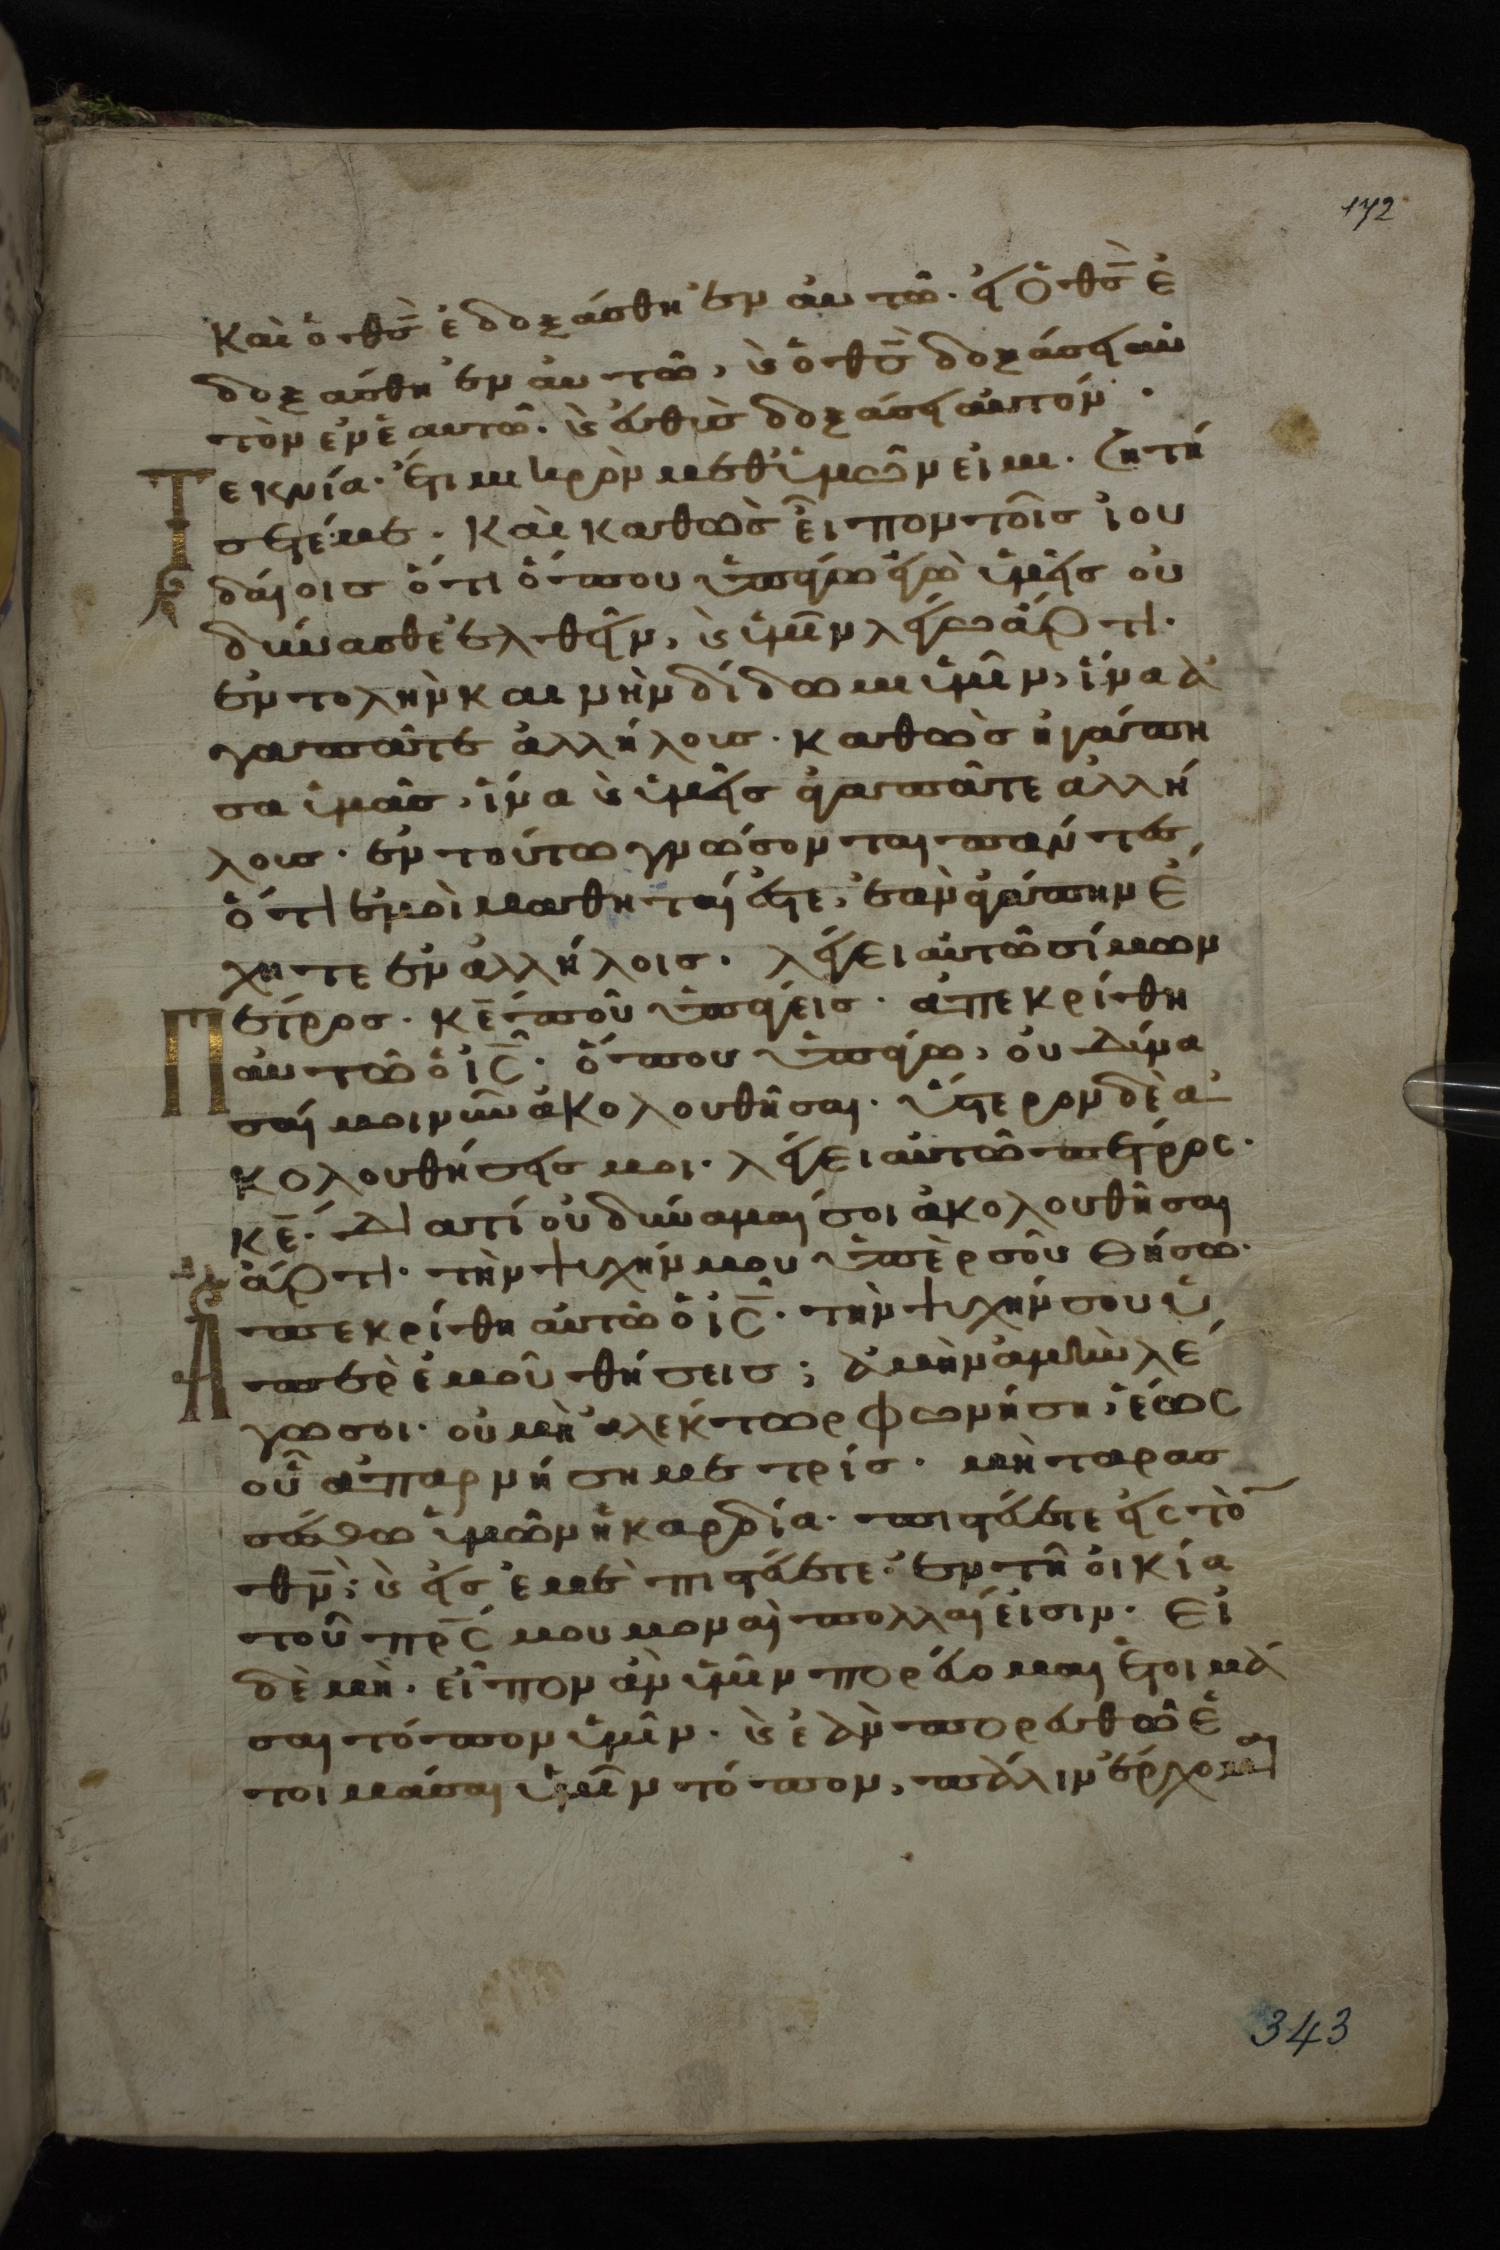 172
Καὶ ὁ θς̅ ἐδοξάσθη ἐν αὐτῶ. εἰ ὁ θς̅ ἐ
δοξάσθη ἐν αὐτῶ, καὶ ὁ θς̅ δοξάσει αὐ
τὸν ἐν ἑαυτῶ. καὶ εὐθὺς δοξάσει αὐτόν.
Τεκνία. ἔτι μικρὸν μεθ ὑμῶν εἰμι. ζητή
σετέ με. Καὶ καθὼς εἶπον τοῖς ἰου
δαίοις ὅτι ὅπου ὑπάγω ἐγὼ ὑμεῖς οὐ
δύνασθε ἐλθεῖν, καὶ ὑμῖν λέγω ἄρτι.
ἐντολὴν καινὴν δίδωμι ὑμῖν, ἵνα ἀ
γαπᾶτε ἀλλήλοις. καθὼς ἠγάπη
σα ὑμᾶς, ἵνα καὶ ὑμεῖς ἀγαπᾶτε ἀλλή
λοις. ἐν τούτω γνώσονται πάντες,
ὅτι ἐμοὶ μαθηταί ἐστε, ἐὰν ἀγάπην ἔ
χητε ἐν ἀλλήλοις. λέγει αὐτῶ σίμων
Πέτρος. κε̅ ποῦ ὑπάγεις. ἀπεκρίθη
αὐτῶ ὁ ις̅. ὅπου ὑπάγω, οὐ δύνα
σαί μοι νῦν ἀκολουθῆσαι. ὕστερον δὲ ἀ
κολουθήσεις μοι. λέγει αὐτῶ πέτρος.
κε̅. διατί οὐ δύναμαί σοι ἀκολουθῆσαι
ἄρτι. τὴν ψυχήν μου ὑπὲρ σοῦ θήσω.
Ἀπεκρίθη αὐτῶ ὁ ις̅. τὴν ψυχήν σου ὑ
πὲρ ἐμοῦ θήσεις; ἀμὴν ἀμὴν λέ
γω σοι. οὐ μὴ ἀλέκτωρ φωνήση, ἕως
οὗ ἀπαρνήση με τρίς. μὴ ταρασ
σέσθω ὑμῶν ἡ καρδία. πιστεύετε εἰς τὸ
θν̅; καὶ εἰς ἐμὲ πιστεύετε. ἐν τῆ οἰκία
τοῦ πρς̅ μου μοναὶ πολλαί εἰσιν. εἰ
δὲ μὴ. εἶπον ἂν ὑμῖν πορεύομαι ἑτοιμά
σαι τόπον ὑμῖν. καὶ ἐὰν πορευθῶ ἑ
τοιμάσαι ὑμῖν τόπον, πάλιν ἔρχομαι
343